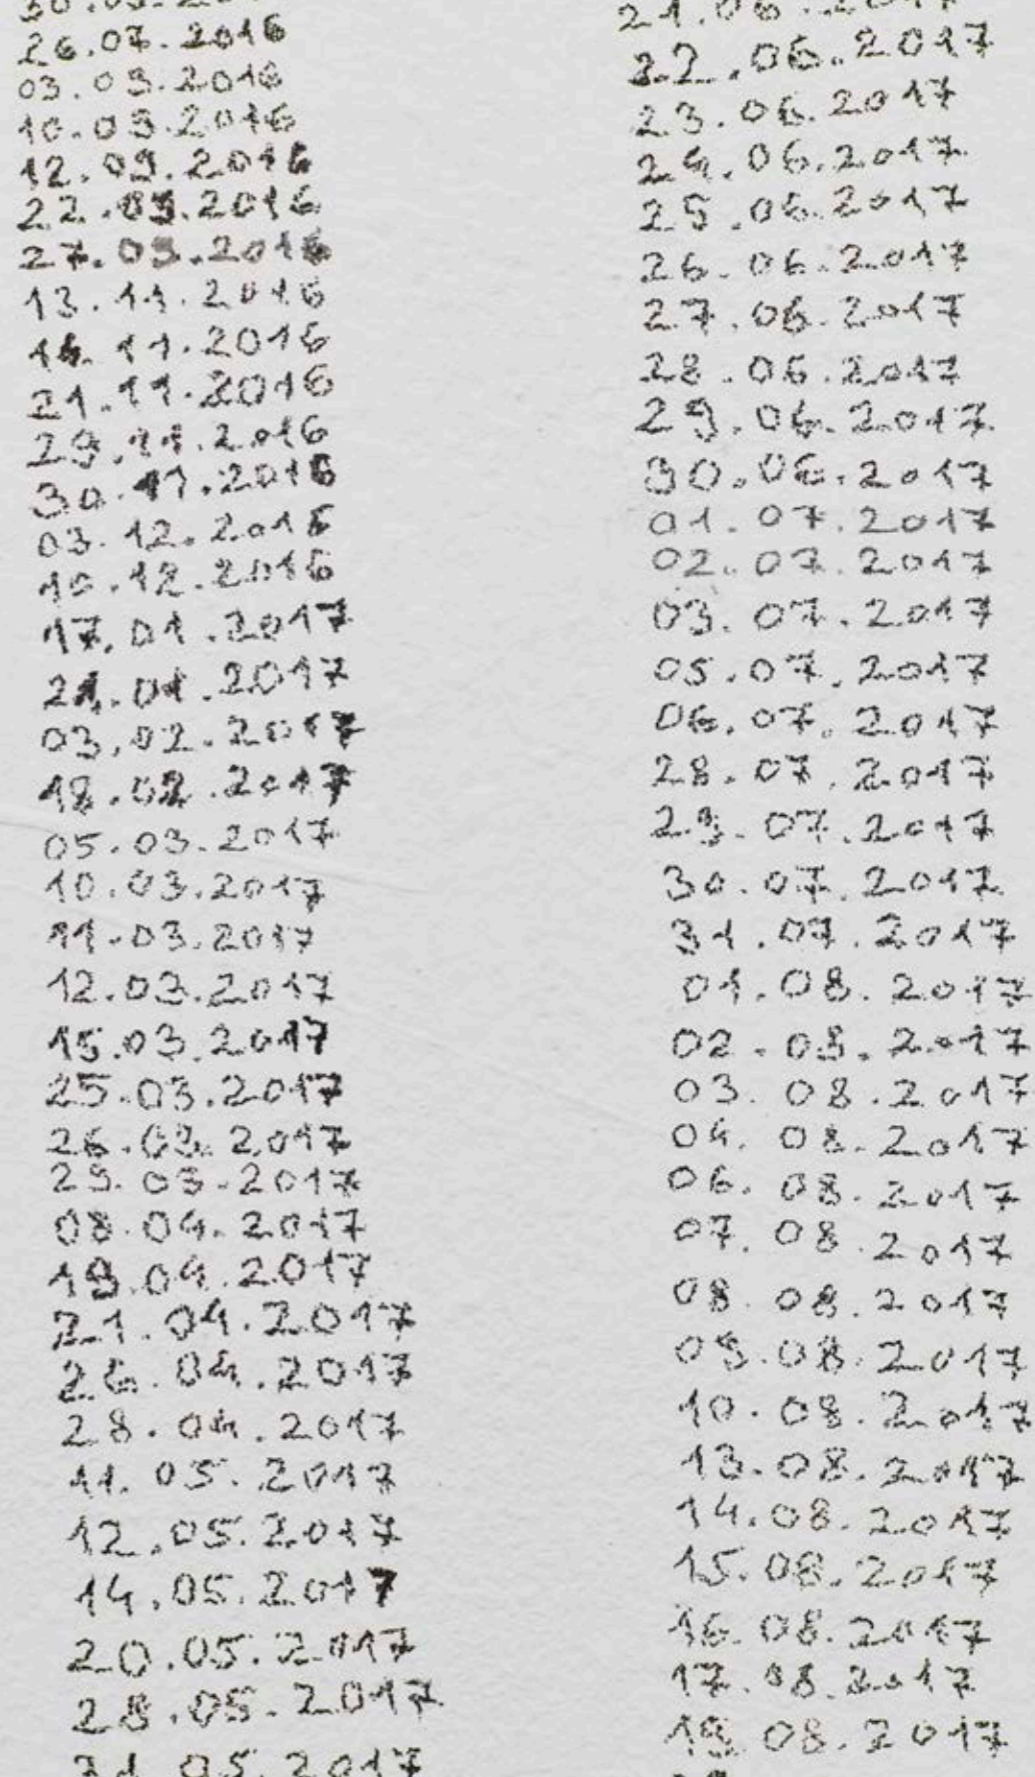 26.07.2016
03.09.2016
10.09.2016
12.09.2016
22.09.2016
27.09.2016
13.11.2016
16.11.2016
21.11.2016
29.11.2016
30.11.2016
03.12.2016
10.12.2016
17.01.2017
21.01.2017
03.02.2017
18.02.2017
05.03.2017
10.03.2017
11.03.2017
12.03.2017
15.03.2017
25.03.2017
26.03.2017
29.03.2017
08.04.2017
19.04.2017
21.04.2017
26.04.2017
28.04.2017
11.05.2017
12.05.2017
14.05.2017
20.05.2017
28.05.2017
31.05.2017
21.06.2017
22.06.2017
23.06.2017
24.06.2017
25.06.2017
26.06.2017
27.06.2017
28.06.2017
29.06.2017
30.06.2017
01.07.2017
02.07.2017
03.07.2017
05.07.2017
06.07.2017
28.07.2017
29.07.2017
30.07.2017
31.07.2017
01.08.2017
02.08.2017
03.08.2017
04.08.2017
06.08.2017
07.08.2017
08.08.2017
09.08.2017
10.08.2017
13.08.2017
14.08.2017
15.08.2017
16.08.2017
17.08.2017
19.08.2017